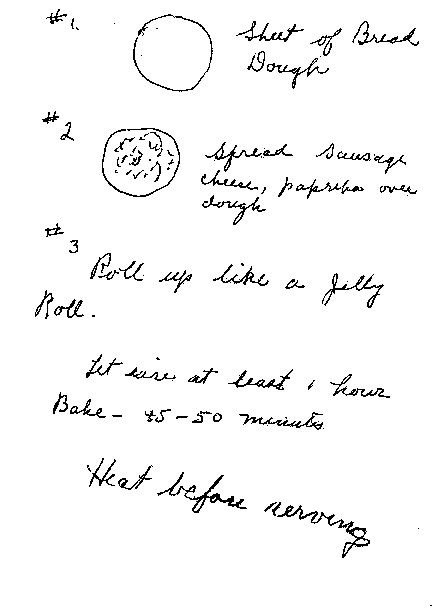 #1. Sheet of Bread
Dough
#2 Spread sausage
cheese, paprika over
dough
#3
Roll up like a Jelly
Roll.
Let rise at least 1 hour
Bake - 45-50 minutes
Heat before serving